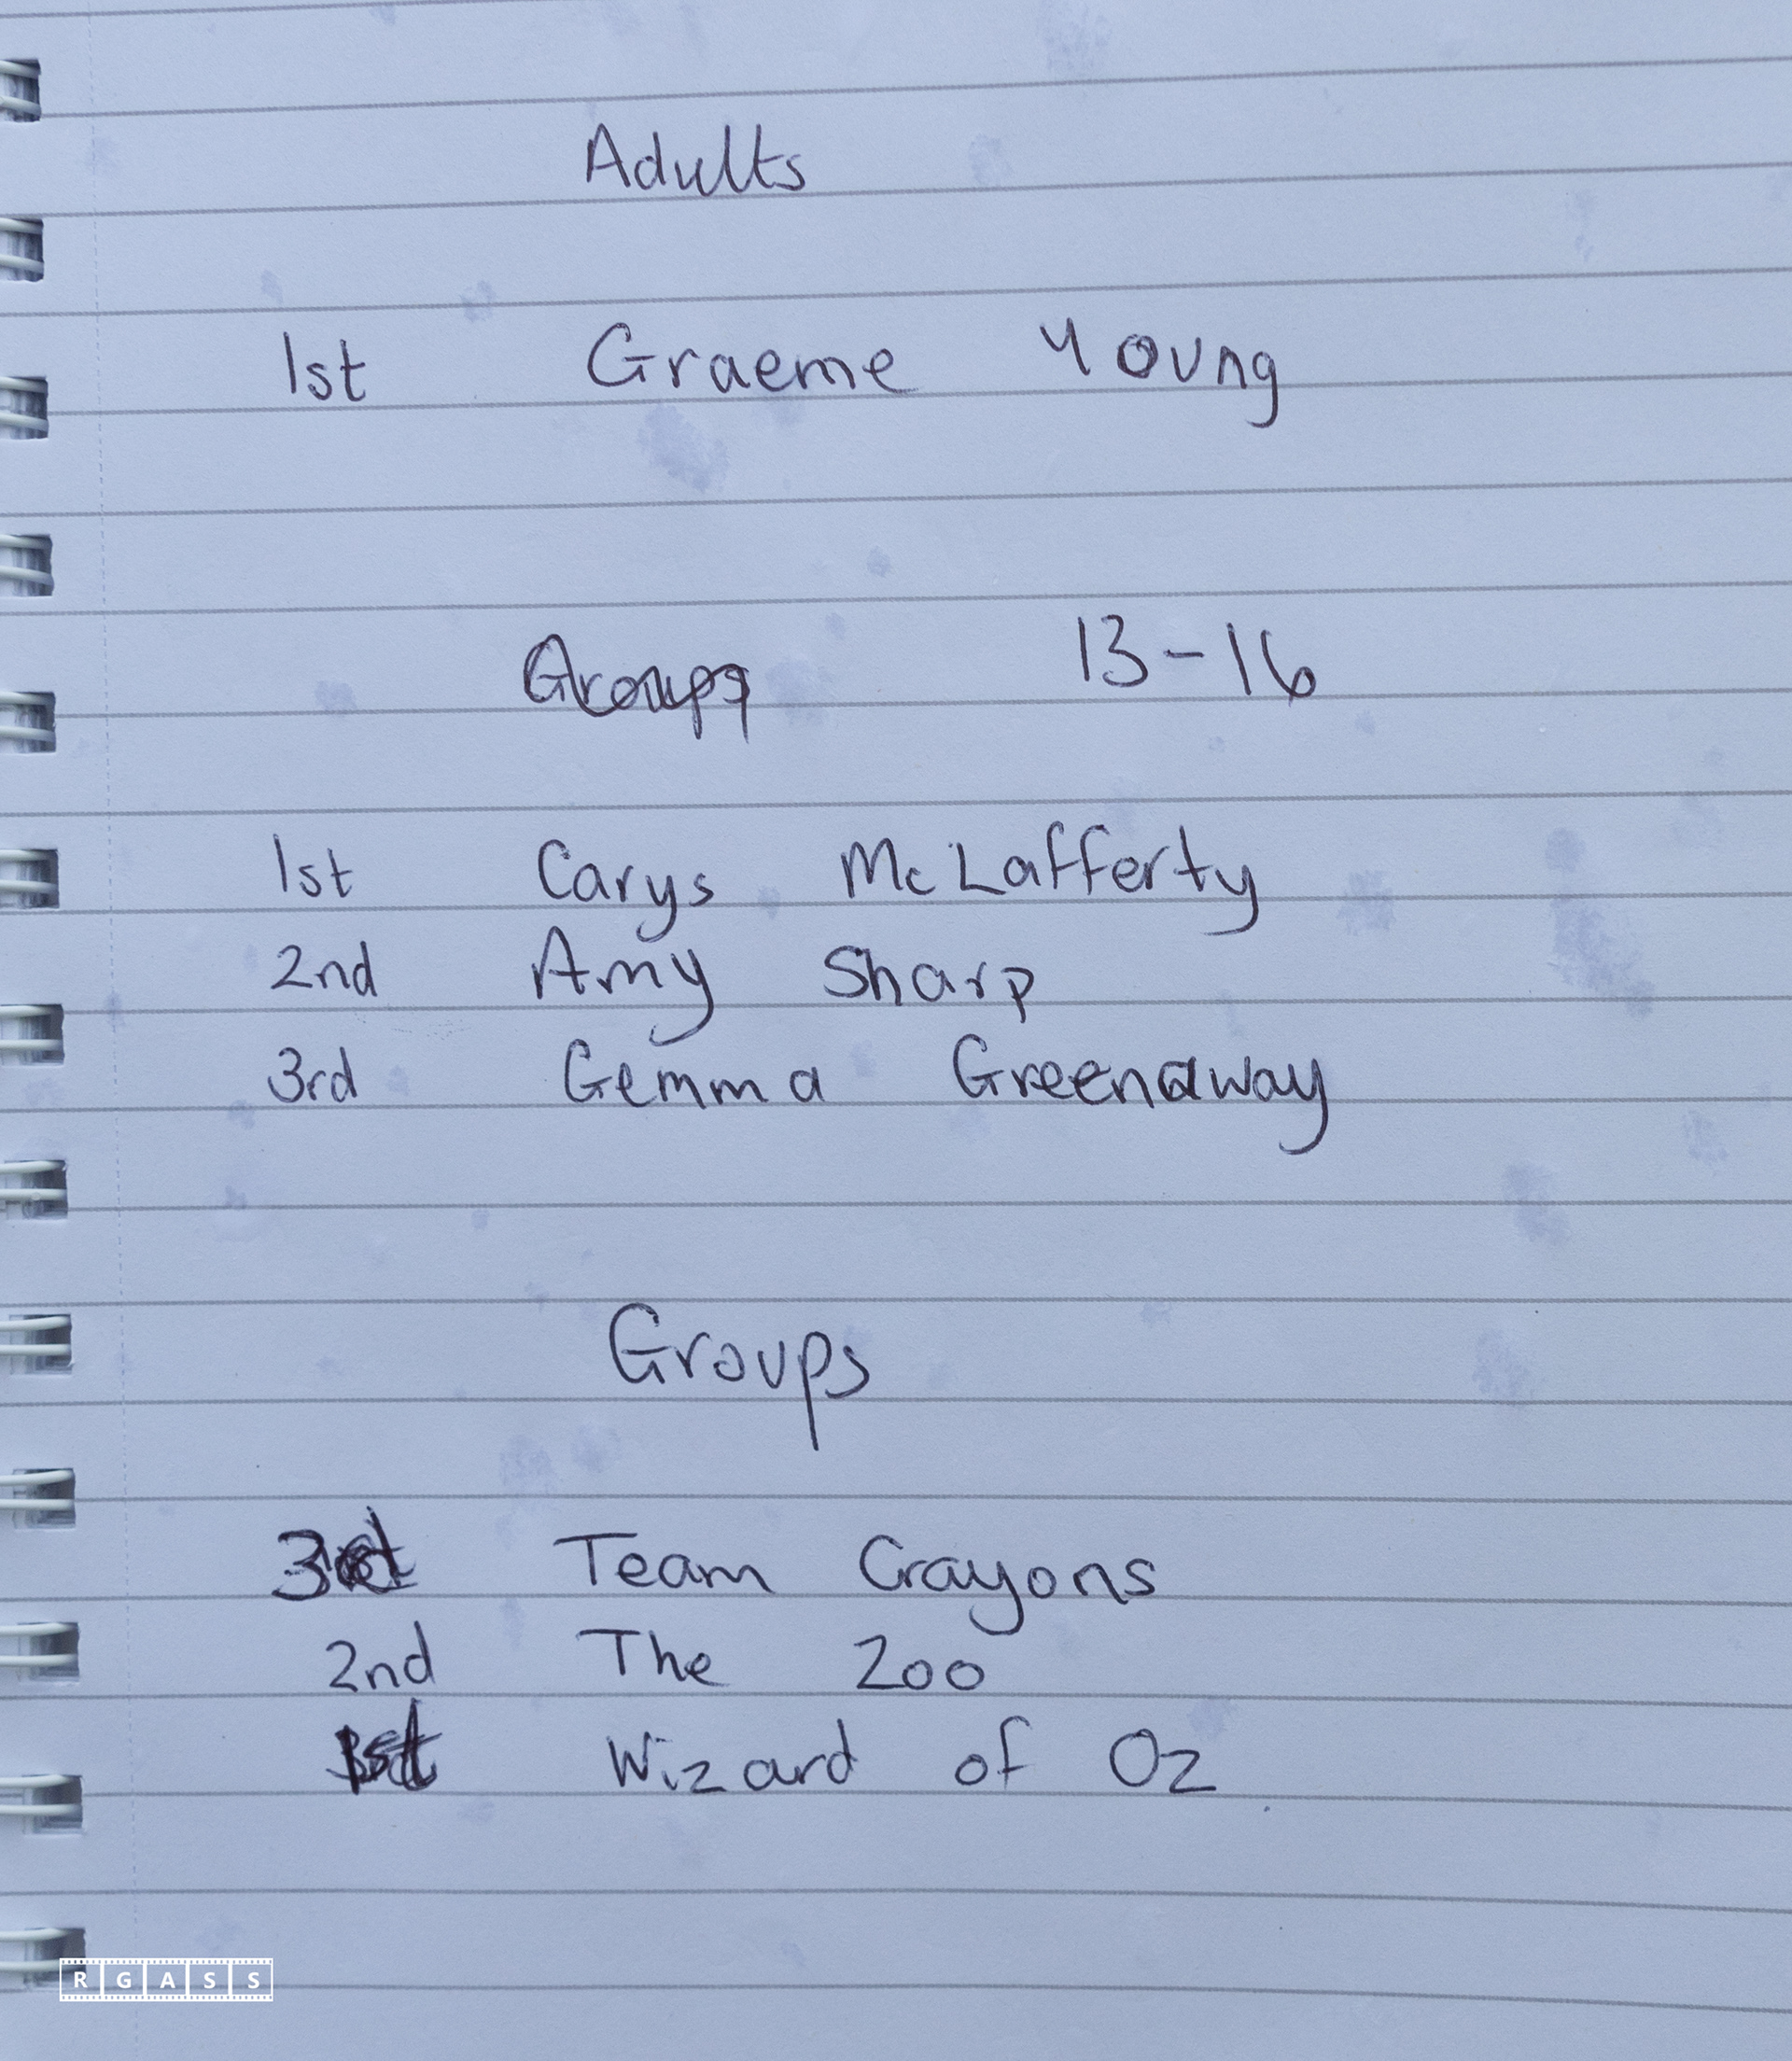 Adults
1st Graeme Young
Groups 13-16
1st Carys McLafferty
2nd Amy Sharp
3rd Gemma Greenaway
Groups
3rd Team Crayons
2nd The Zoo
1st Wizard of Oz
RGASS